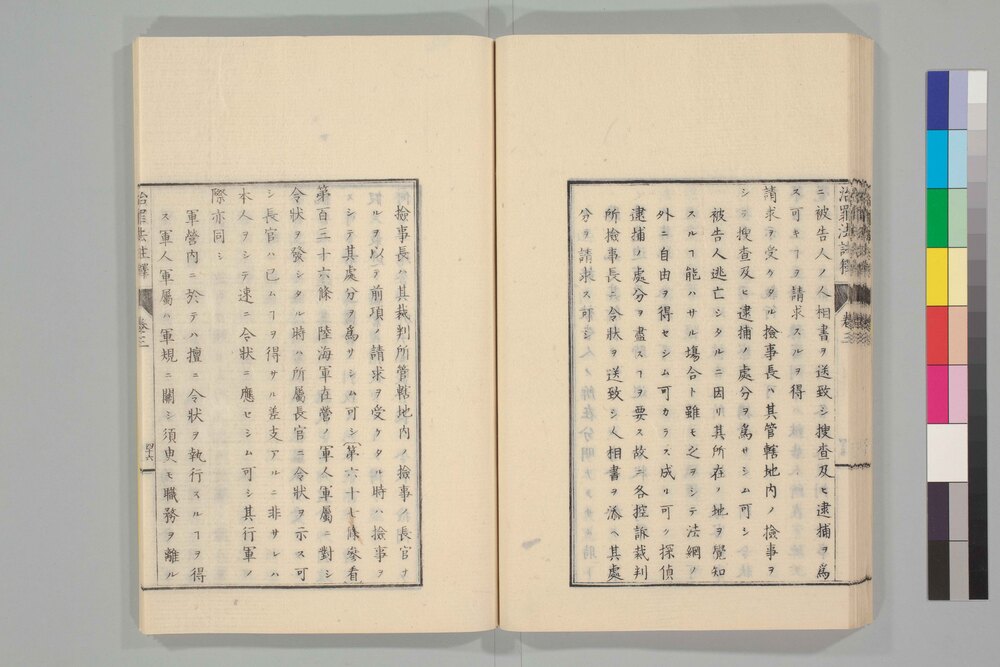 治罪法註釋 卷三
ニ被告人ノ人相書ヲ送致シ捜查及ヒ逮捕ヲ爲
ス可キヿヲ請求スルヲ得
請求ヲ受ケタル撿事長ハ其管轄地内ノ撿事ヲ
シテ捜查及ヒ逮捕ノ處分ヲ爲サシム可シ
被告人逃亡シタルニ因リ其所在ノ地ヲ覺知
スルヿ能ハサル塲合ト雖モ之ヲシテ法網ノ
外ニ自由ヲ得セシム可カラス成ル可ク探偵
逮捕ノ處分ヲ盡スヿヲ要ス故ニ各控訴裁判
所撿事長ニ令狀ヲ送致シ人相書ヲ添ヘ其處
分ヲ請求ス可シ
撿事長ハ其裁判所管轄地内ノ撿事ノ長官ナ
ルヲ以テ前項ノ請求ヲ受ケタル時ハ撿事ヲ
シテ其處分ヲ爲サシム可シ(第六十七條參看
第百三十六條 陸海軍在營ノ軍人軍屬ニ對シ
令狀ヲ發シタル時ハ所屬長官ニ令狀ヲ示ス可
シ長官ハ已ムヿヲ得サル差支アルニ非サレハ
本人ヲシテ速ニ令狀ニ應セシム可シ其行軍ノ
際亦同シ
軍營内ニ於テハ擅ニ令狀ヲ執行スルヿヲ得
ス軍人軍屬ハ軍規ニ關シ須臾モ職務ヲ離ル
治罪法註釋 卷三 四十六